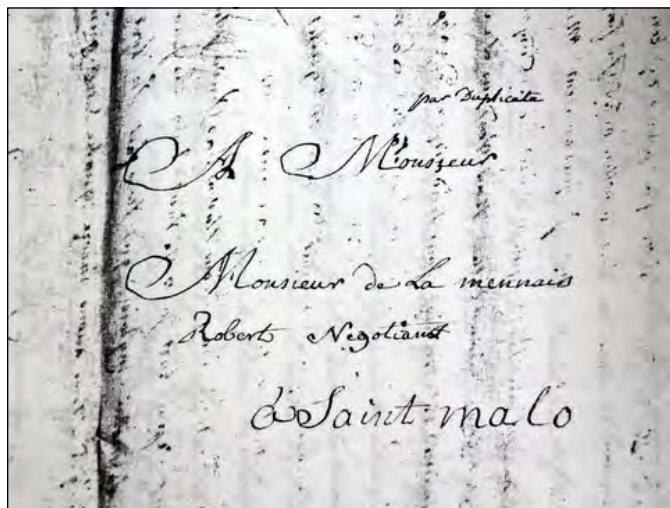 par Duplicata
A Monsieur
Monsieur de La mennais
Robert Negotiant
à Saint malo